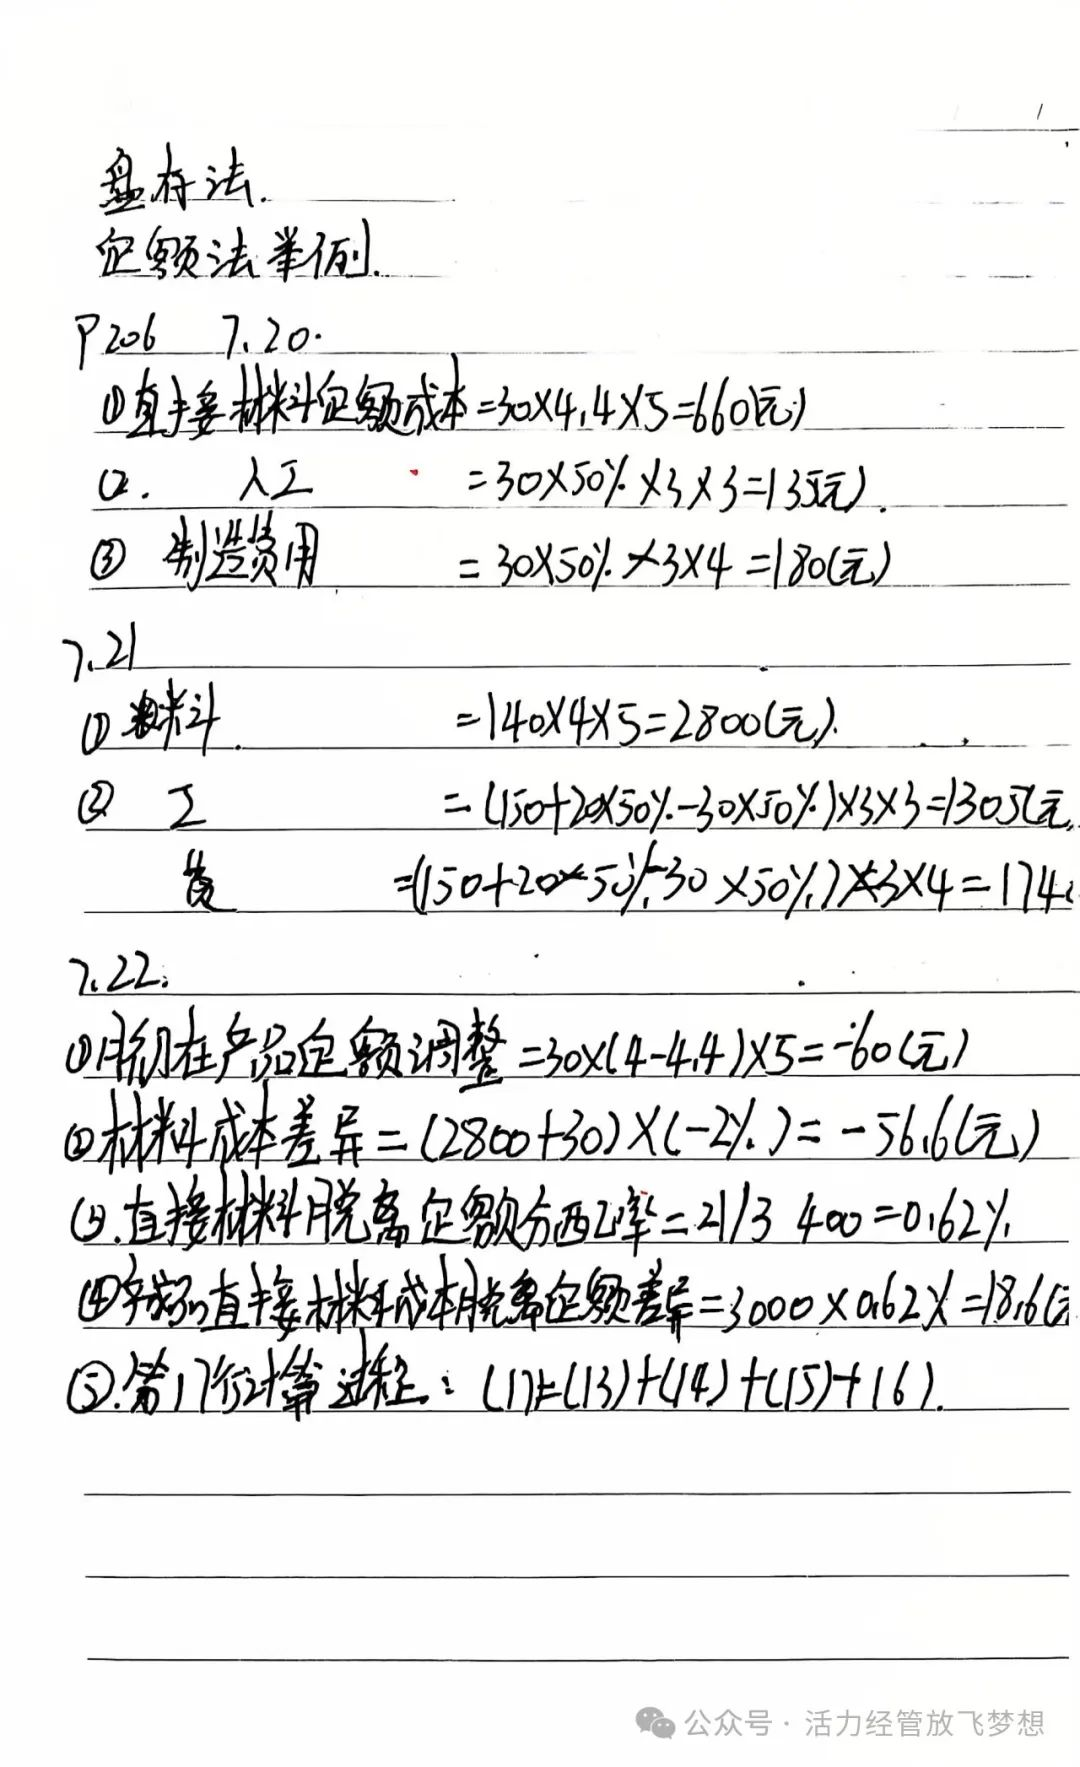 盘存法.
定额法举例.
P206 7.20.
①直接材料定额成本=30×4.4×5=660(元)
②. 人工 =30×50%×3×3=135(元).
③ 制造费用 =30×50%×3×4=180(元)
7.21
①材料. =140×4×5=2800(元).
② 工 =(150+20×50%-30×50%)×3×3=1305(元.
费 =(150+20×50%-30×50%)×3×4=174
7.22.
①月初在产品定额调整=30×(4-4.4)×5=-60(元)
②材料成本差异=(2800+30)×(-2%)=-56.6(元)
③.直接材料脱离定额分配率=21/3400=0.62%
④产成品直接材料成本脱离定额差异=3000×0.62%=18.6(元
⑤.第17行计算过程:(17)=(13)+(14)+(15)+16).
公众号·活力经管放飞梦想